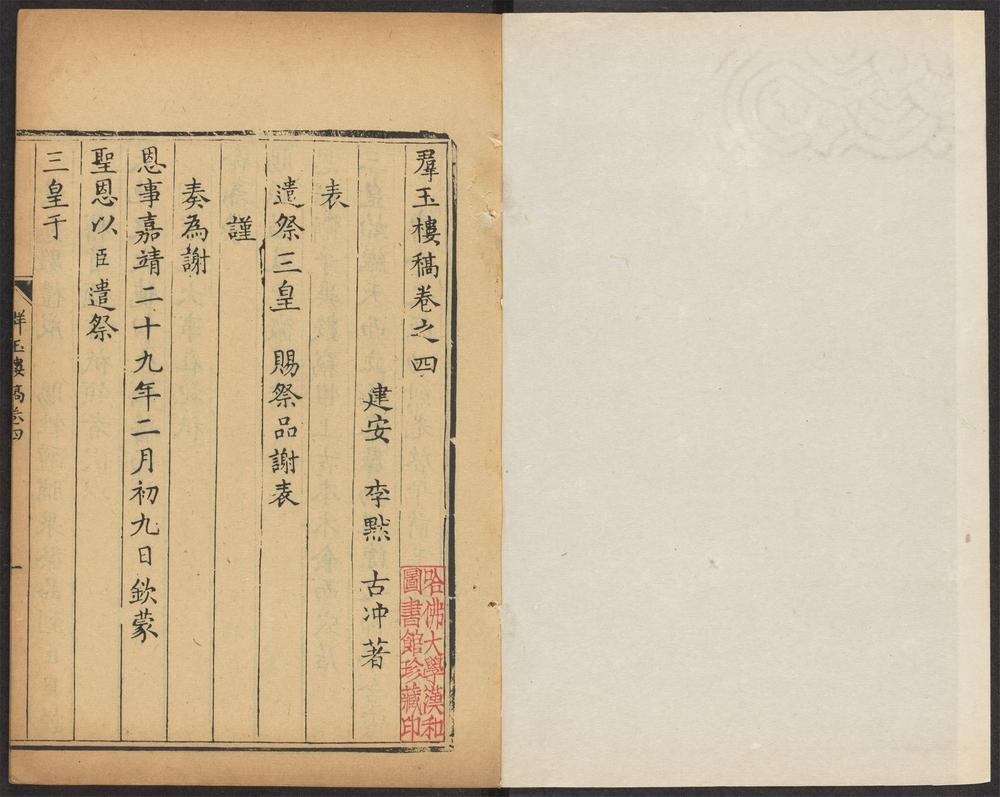 羣玉樓稿卷之四
建安 李黙 古冲著
表
遣祭三皇 賜祭品謝表
謹
奏為謝
恩事嘉靖二十九年二月初九日欽蒙
聖恩以臣遣祭
三皇于
群玉樓稿卷四
一
哈佛大學漢和
圖書館珍藏印